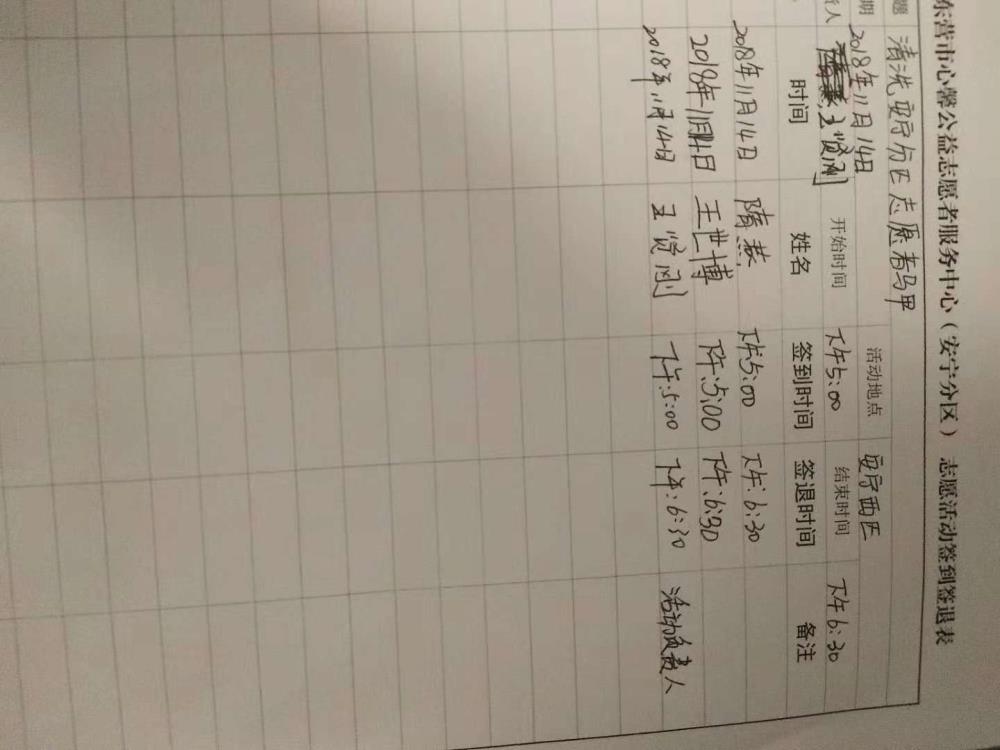 东营市心馨公益志愿者服务中心（安宁分区） 志愿活动签到签退表
题 清洗安宁分区志愿者马甲
期 2018年11月14日 活动地点 安宁西区
人 王贤刚 开始时间 下午5:00 结束时间 下午6:30
时间 姓名 签到时间 签退时间 备注
2018年11月14日 隋燕 下午5:00 下午:6:30
2018年11月14日 王世博 下午:5:00 下午:6:30
2018年11月14日 王贤刚 下午:5:00 下午:6:30 活动负责人